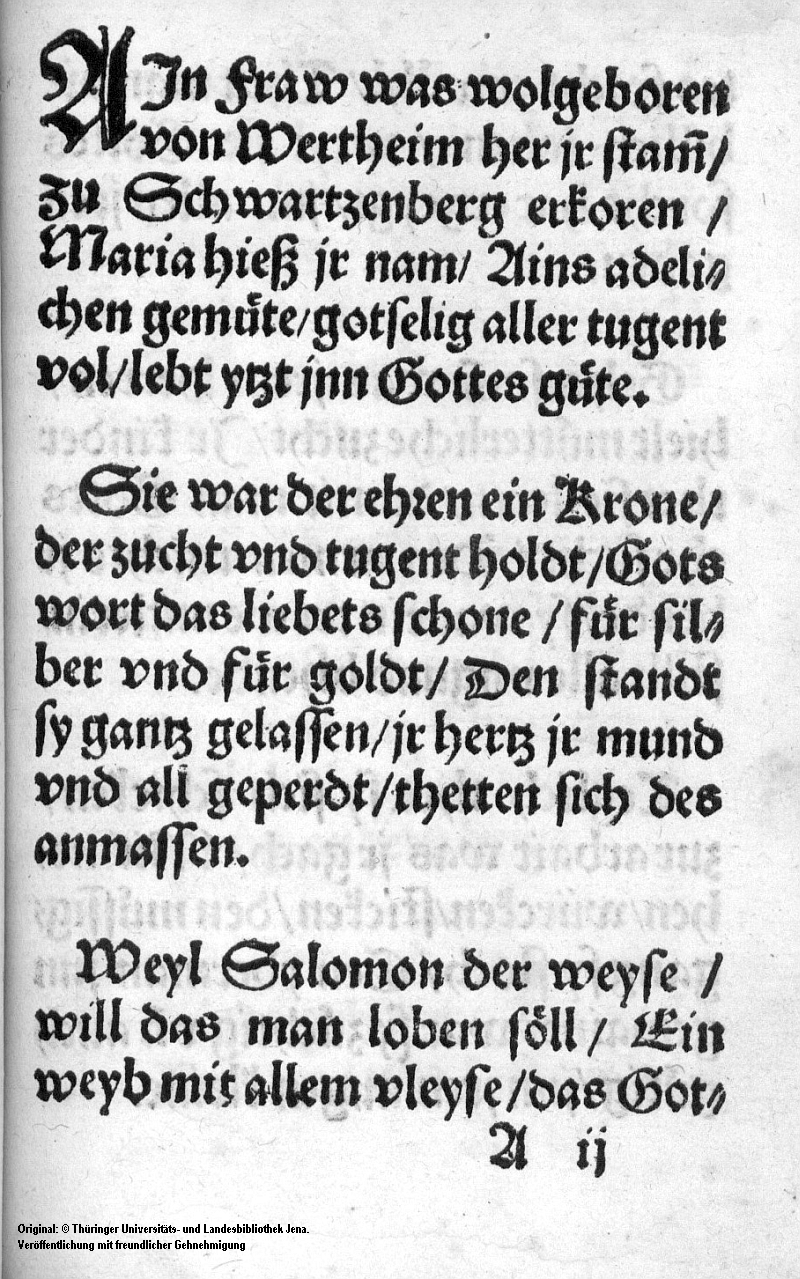 AJn Fraw was wolgeboren
von Wertheim her jr stam̃/
zu Schwartzenberg erkoren /
Maria hieß jr nam/ Ains adeli⸗
chen gemuͤte/gotselig aller tugent
vol/lebt ytzt jnn Gottes guͤte.
Sie war der ehren ein Krone/
der zucht vnd tugent holdt/Gots
wort das liebets schone / fuͤr sil⸗
ber vnd fuͤr goldt/ Den standt
sy gantz gelassen/jr hertz jr mund
vnd all geperdt/thetten sich des
anmassen.
Weyl Salomon der weyse /
will das man loben soͤll/ Ein
weyb mit allem vleyse/das Got⸗
A ij
Original: © Thüringer Universitäts- und Landesbibliothek Jena.
Veröffentlichung mit freundlicher Gehnehmigung